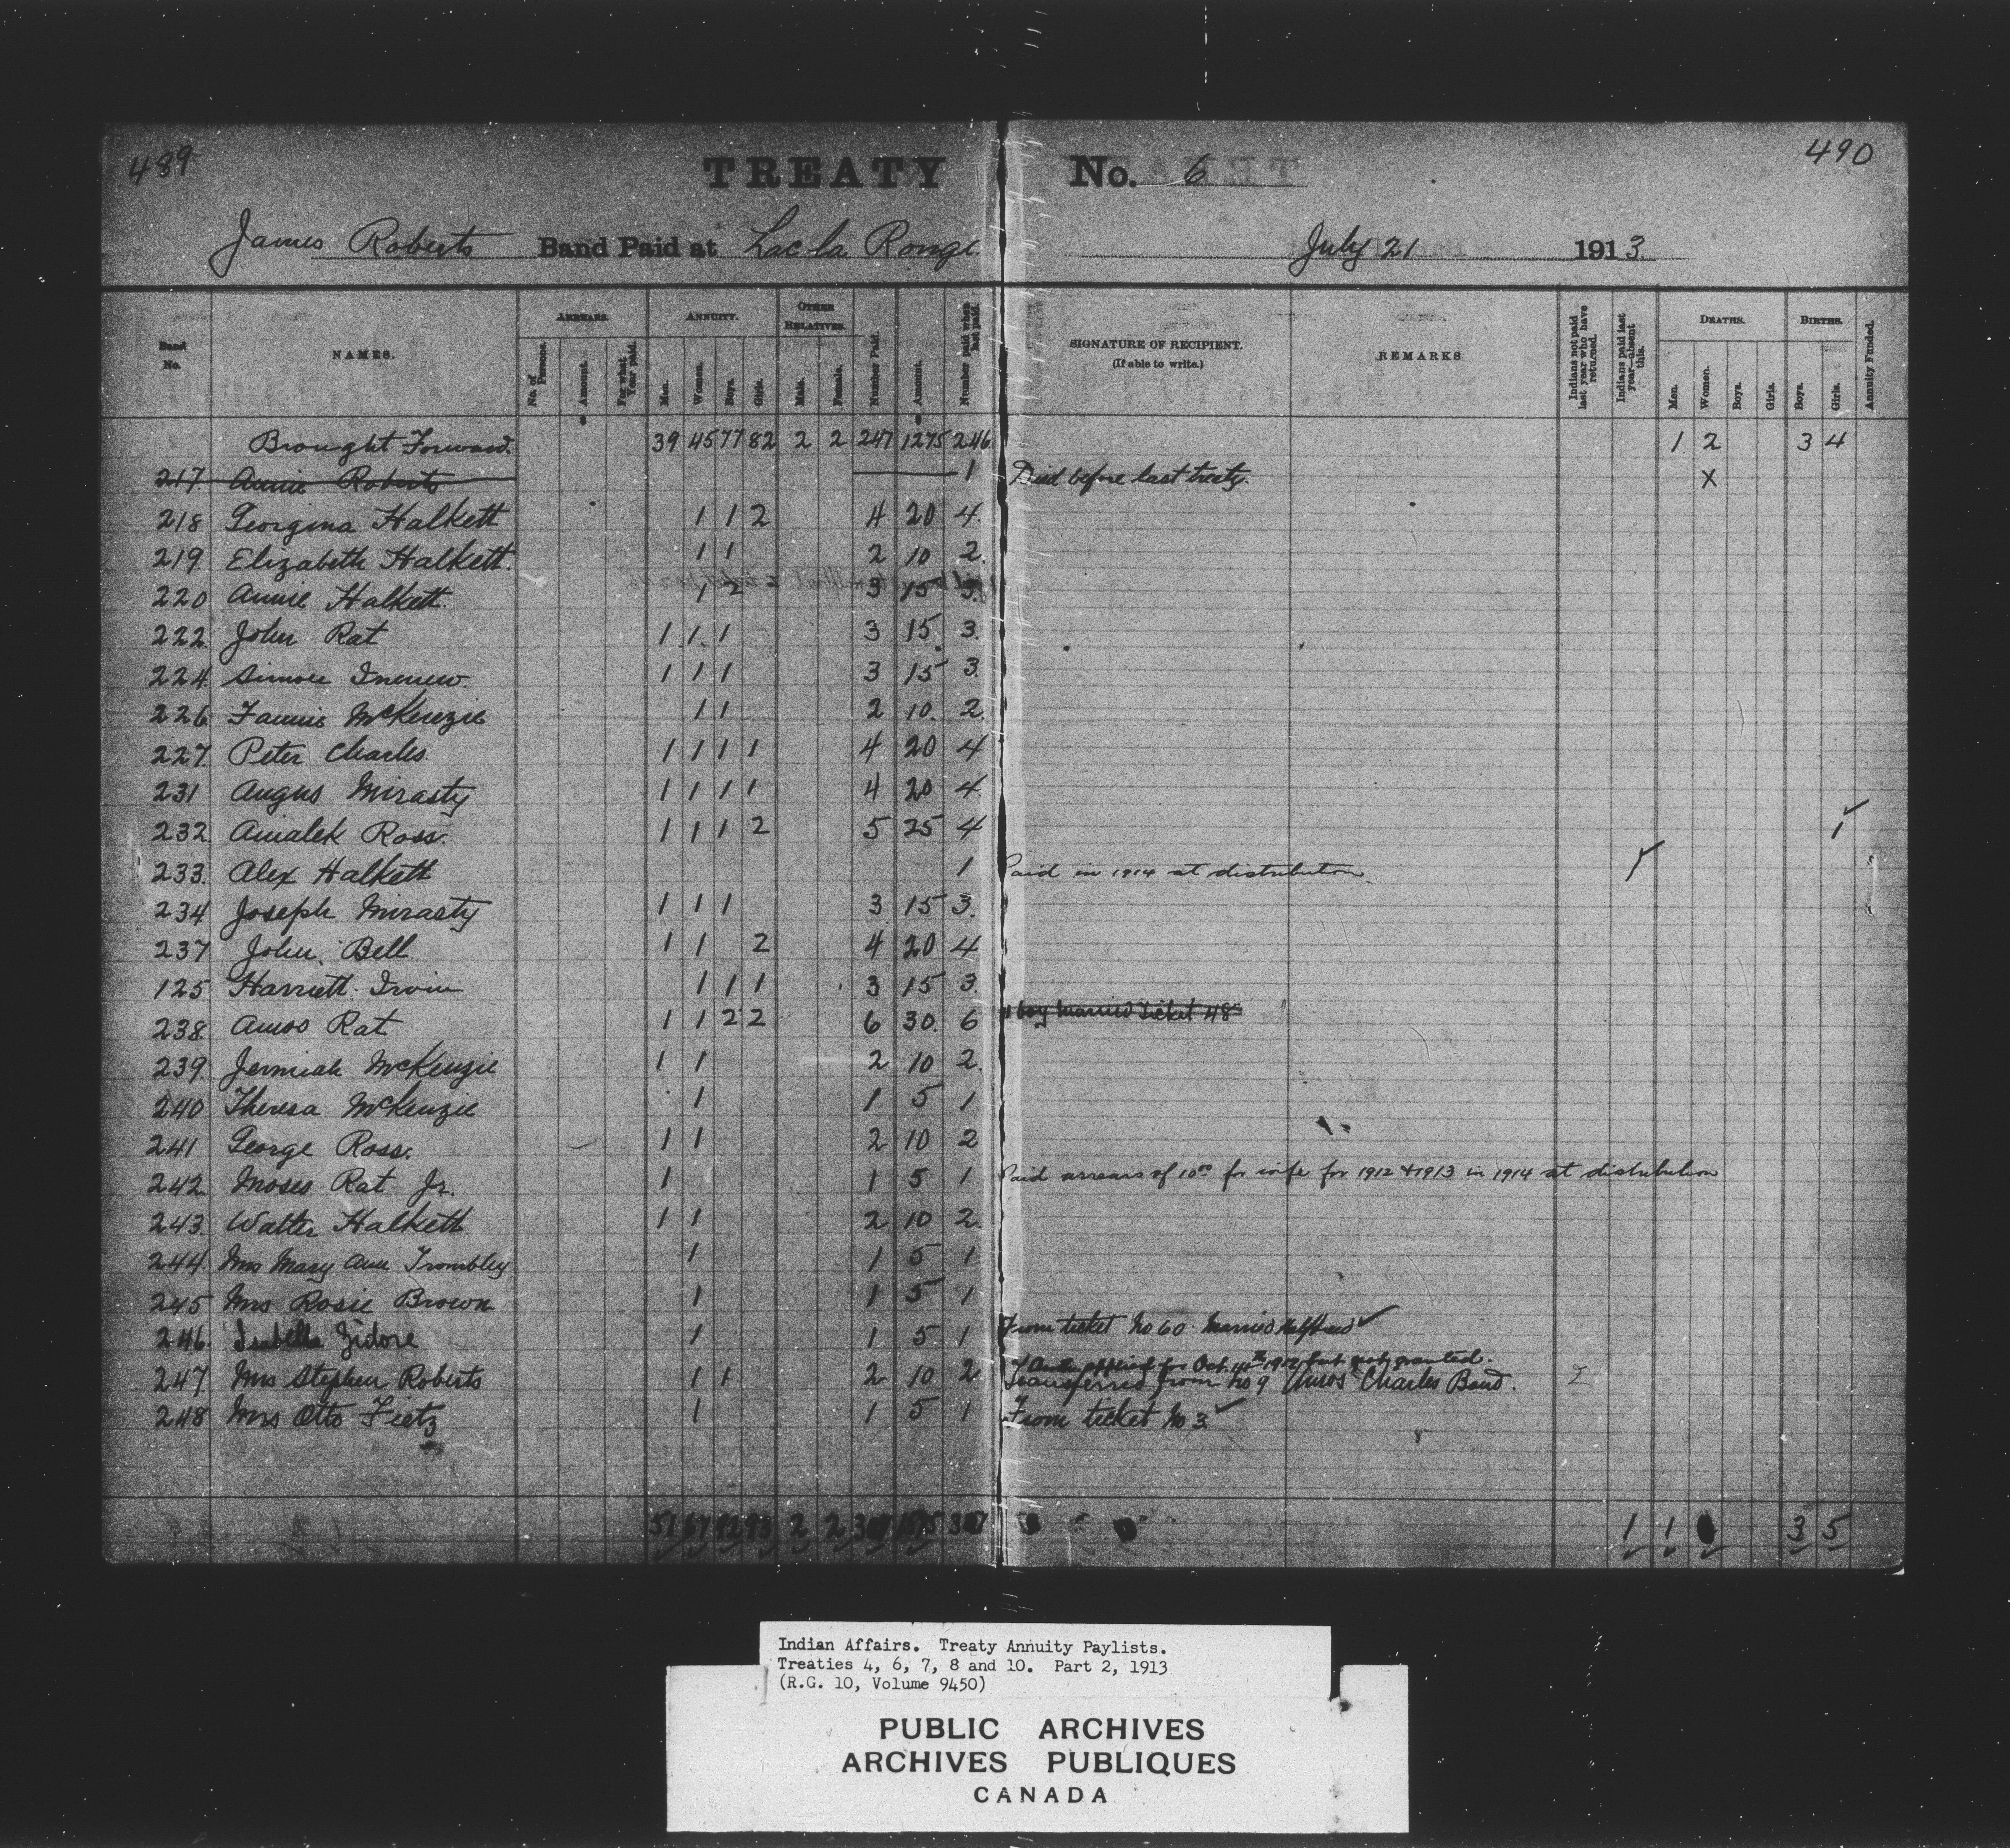 489
490
TREATY No. 6
James Roberts Band Paid at Lac la Ronge July 21 1913
Band No.
NAMES.
ARREARS.
No. of Persons.
Amount.
For what Year paid.
ANNUITY.
Men.
Women.
Boys.
Girls.
OTHER RELATIVES.
Male.
Female.
Number Paid.
Amount.
Number paid when last paid.
SIGNATURE OF RECIPIENT.
(If able to write.)
REMARKS
Indians not paid last year who have returned.
Indians paid last year—absent this.
DEATHS.
Men.
Women.
Boys.
Girls.
BIRTHS.
Boys.
Girls.
Annuity Funded.
Brought Forward. 39 45 77 82 2 2 247 1275 246 1 2 3 4
217 Annie Roberts 1 Died before last treaty. X
218 Georgina Halkett 1 1 2 4 20 4
219 Elizabeth Halkett. 1 1 2 10 2
220 Annie Halkett. 1 2 3 15 3
222 John Rat 1 1 1 3 15 3
224 Simon Inenew. 1 1 1 3 15 3
226 Fannie McKenzie 1 1 2 10 2
227 Peter Charles 1 1 1 1 4 20 4
231 Angus Mirasty 1 1 1 1 4 20 4
232 Amalek Ross. 1 1 1 2 5 25 4 1
233 Alex Halkett 1 Paid in 1914 at distribution. 1
234 Joseph Mirasty 1 1 1 3 15 3
237 John Bell 1 1 2 4 20 4
125 Harriett Irvin 1 1 1 3 15 3
238 Amos Rat 1 1 2 2 6 30 6 1 boy married ticket 48
239 Jermiah McKenzie 1 1 2 10 2
240 Theresa McKenzie 1 1 5 1
241 George Ross. 1 1 2 10 2
242 Moses Rat Jr. 1 1 5 1 Paid arrears of 10.00 for wife for 1912 & 1913 in 1914 at distribution
243 Walter Halkett 1 1 2 10 2
244 Mrs Mary Ann Trombley 1 1 5 1
245 Mrs Rosie Brown 1 1 5 1
246 Isabella Zidore 1 1 5 1 From ticket No 60 Married Halfbreed ✓
247 Mrs Stephen Roberts 1 1 2 10 2 applied for Oct. 1912 but not granted.
Transferred from No 9 Amos Charles Band.
248 Mrs Otto Fietz 1 1 5 1 From ticket No 3 ✓
57 67 92 93 2 2 1 1 3 5
Indian Affairs. Treaty Annuity Paylists.
Treaties 4, 6, 7, 8 and 10. Part 2, 1913
(R.G. 10, Volume 9450)
PUBLIC ARCHIVES
ARCHIVES PUBLIQUES
CANADA